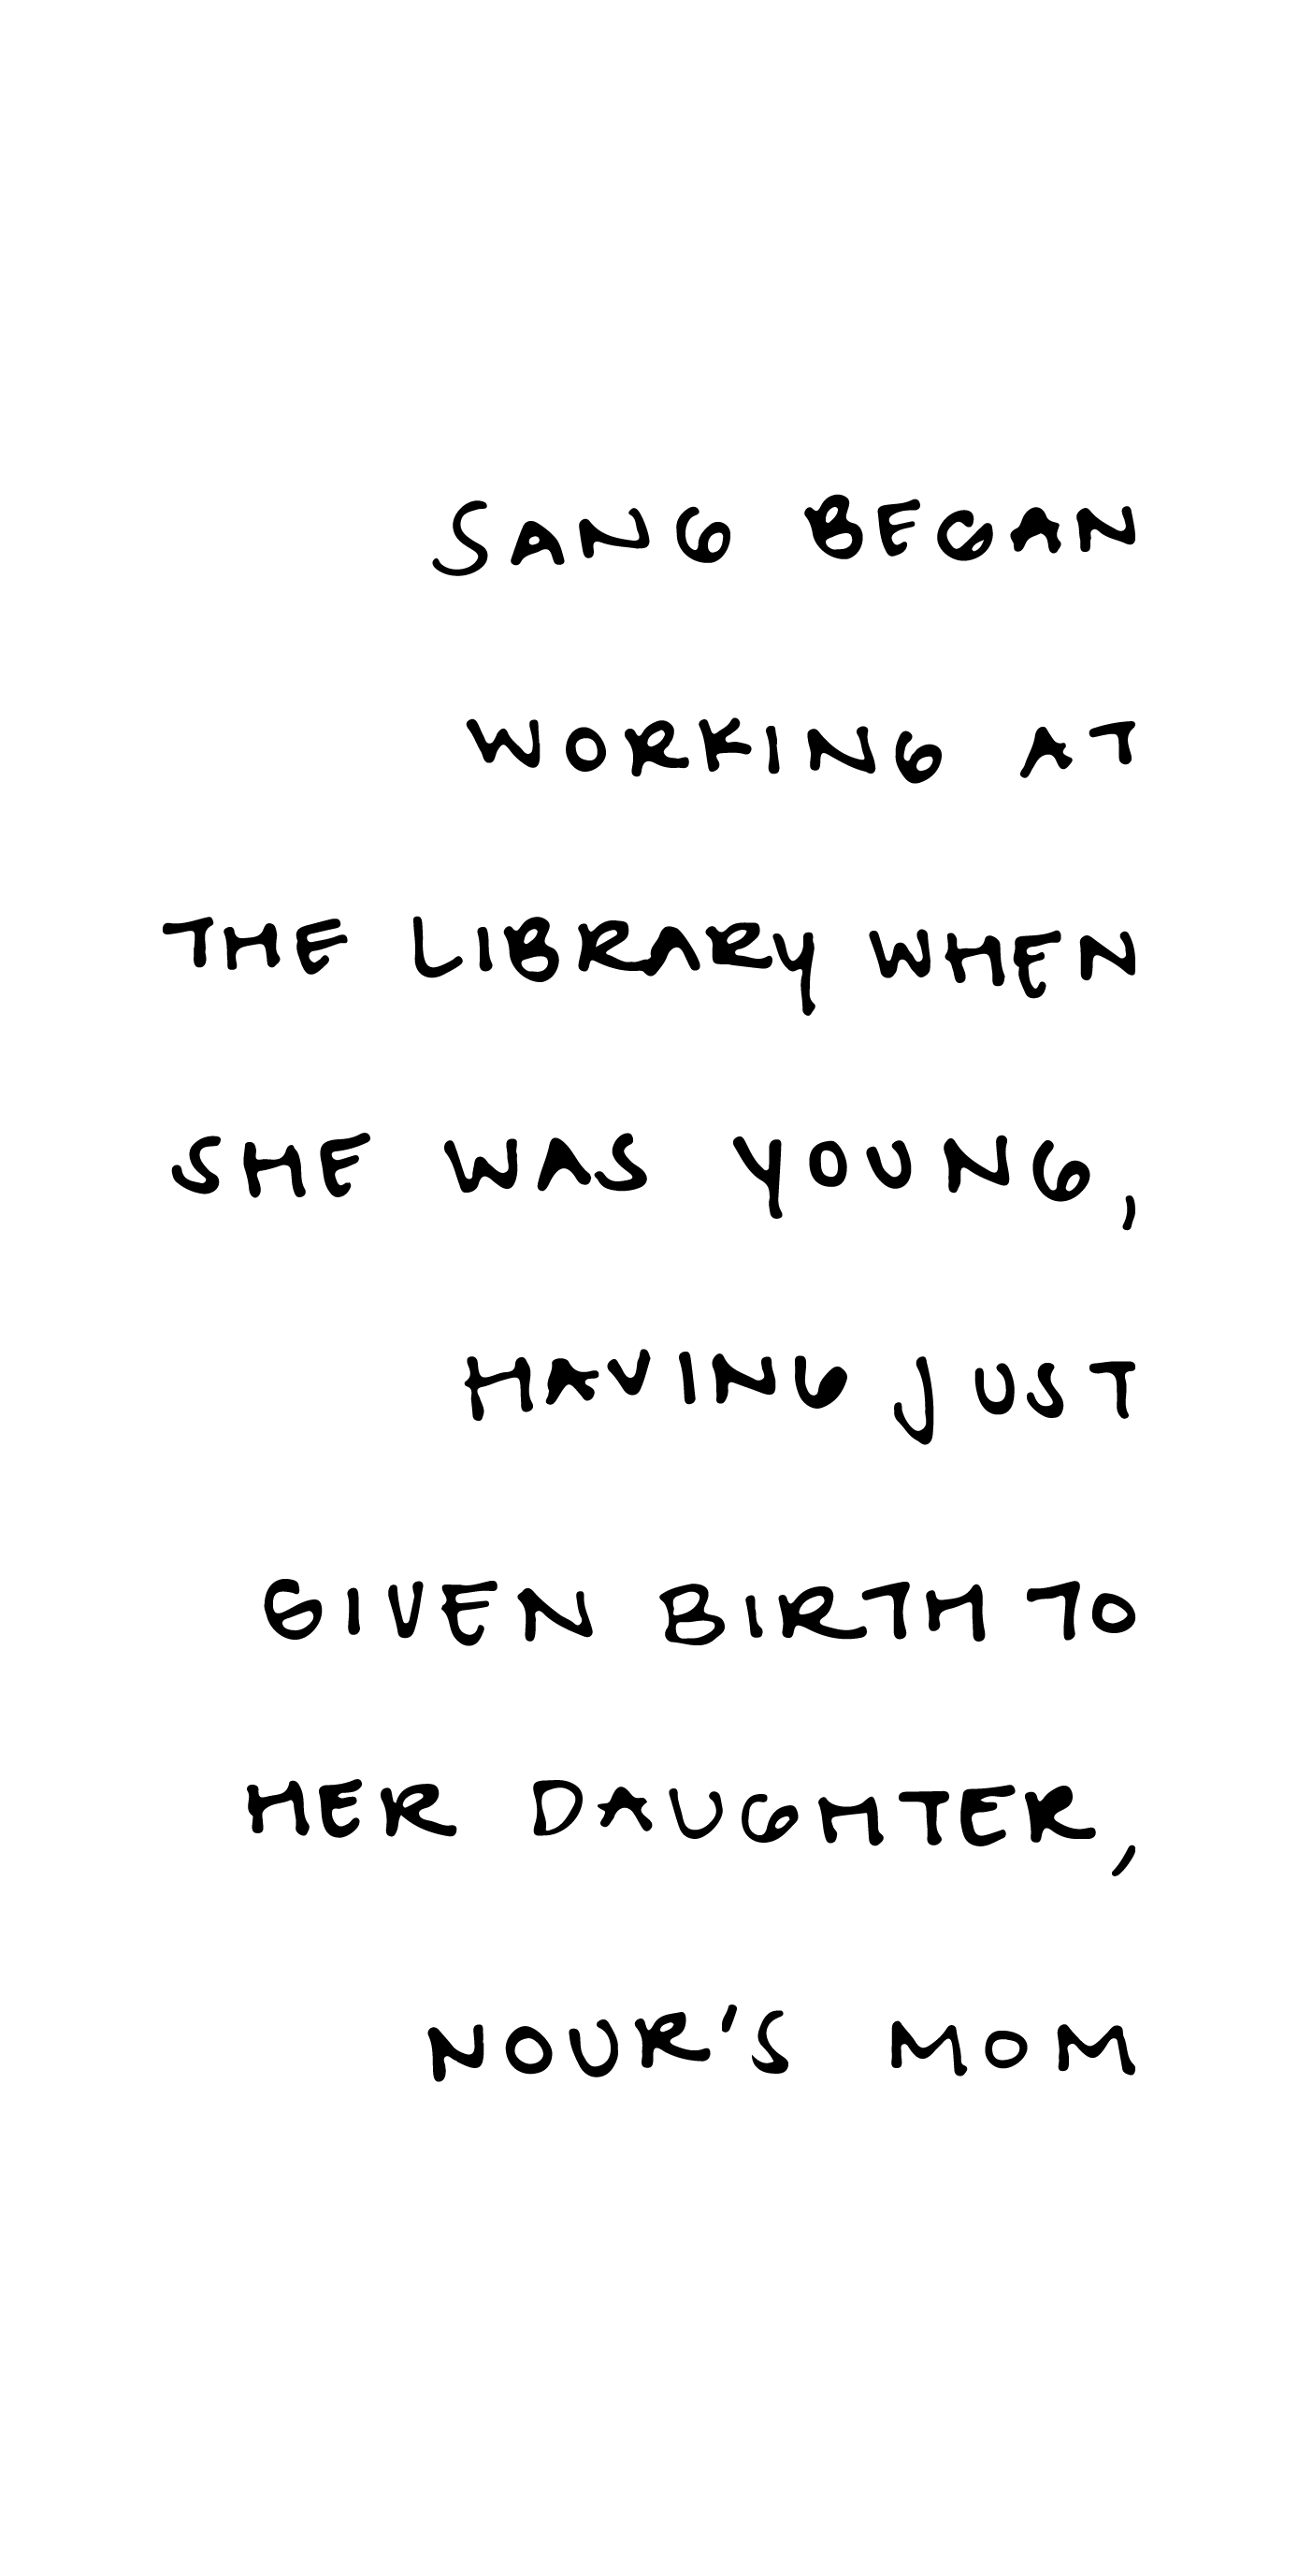 SANG BEGAN
WORKING AT
THE LIBRARY WHEN
SHE WAS YOUNG,
HAVING JUST
GIVEN BIRTH TO
HER DAUGHTER,
NOUR'S MOM